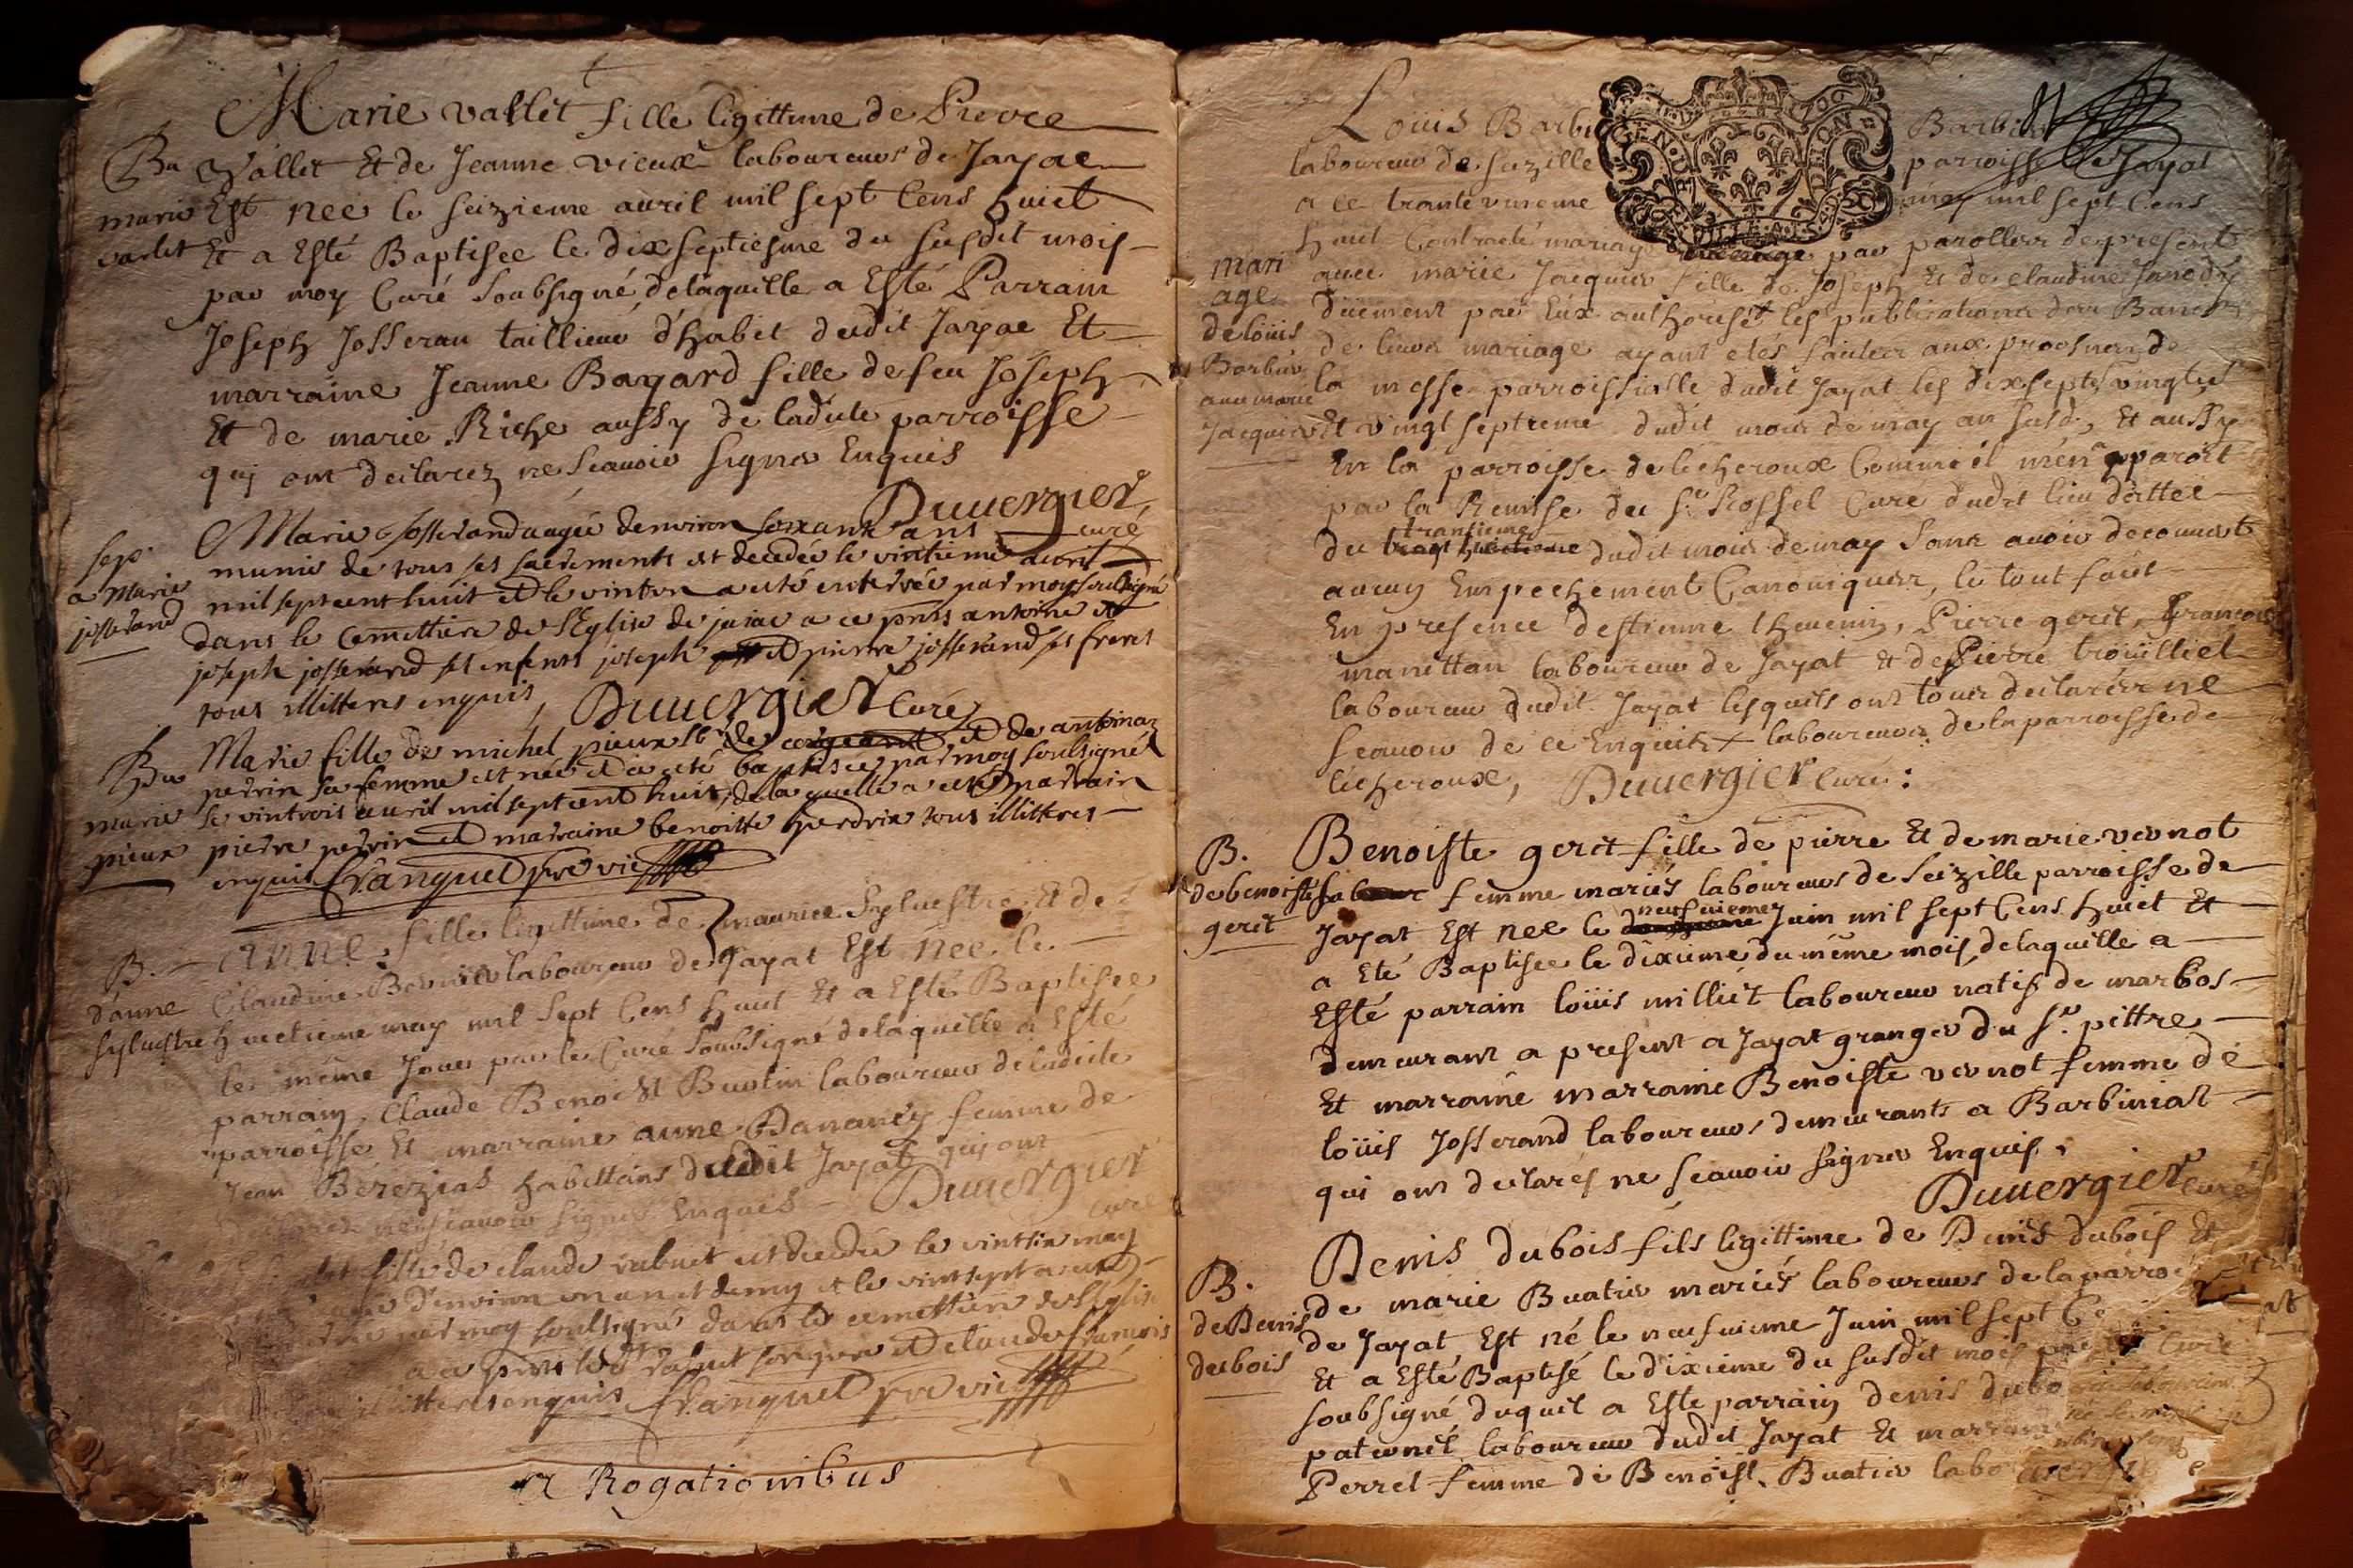 Marie vallet fille ligittime de Pierre
Ba Vallet Et de Jeanne vieux laboureurs de Jayac
marie Est née le seizieme auril mil sept Cens huict
vallet Et a Esté Baptisée le dixseptiesme du susdit mois
par moy Curé soubsigné, de laquille a Esté Parrain
Joseph Josserau taillieur d'habit dudit Jayac Et
marraine Jeanne Bayard fille de feu Joseph
Et de marie Riche aussy de ladite parroisse
qui ont declarez ne scauoir signer Enquis
Duuergier
curé
sep.
a marie
josserand
Marie josserand aagée denviron soixante ans
munie de tous ses sacrements est decedée le vintieme auril
mil sept cent huit et le vintvn a esté enterrée par moy soubsigné
dans le Cemettiere de l'Eglise de jaiac a ce pnts antoine et
joseph josserand ses enfents joseph et pierre josserand ses freres
tous illitteres enquis, Duuergier Curé
B
marie
pieux
Marie fille de michel pieux et de antoina
perrin sa femme est née et a esté baptisée par moy soubsigné
le vintrois auril mil sept cent huit, de laquelle a esté parrain
pierre perrin et marraine benoitte perdrix tous illitteres
enquis Franquet pre vic
B.
d'anne
syluestre
Anne fille ligittime de maurice Syluestre Et de
Claudine Bernier laboureur de Jayat Est née le
huictieme may mil sept Cens huict Et a Esté Baptisée
le même Jour par le Curé soubsigné de laquille a Esté
parrain Claude Benoist Buatin laboureur de ladite
parroisse Et marraine anne Dananey femme de
Jean Berezias habittans dudit Jayat qui ont
ne scauoir signer Enquis Duuergier
curé
fille de claude rabuet est decedée le vintsix may
aagée d'environ un an et demy et le vintsept a esté
par moy soubsigné dans le cemettiere de l'Eglise
a ce pnts rabuet son pere et claude francois
illitteres enquis Franquet pre vic
A Rogationibus
Loüis Barbi Barbi
laboureur de suzille parroisse de Jayat
a ce trente vnieme may mil sept Cens
huit Contracté mariage par parolles de present
mari
age
de loüis
Barbier
auec marie
Jacquier
auec marie Jacquier fille de Joseph Et de claudine
Düement par Eux authorisés les publications des Bans
de leur mariage ayant etés faites aux prosnes de
la messe parroissialle dudit Jayat les dixsept, vingt
Et vingt septieme dudit mois de may an susd., Et aussy
En la parroisse de lecheroux Comme il m'en apparoit
par la Remise du Sr. Rossel Curé dudit lieu dattée
du trantieme dudit mois de may sans auoir decouuert
aucun Empechement Canoniques, le tout fait
En presence d'estienne theuenin, Pierre gerit, francois
manittan laboureur de Jayat Et de Pierre troüilliet
laboureur dudit Jayat lesquels ont tous declarés ne
scauoir de ce Enquis laboureurs de la parroisse de
lecheroux, Duuergier curé:
B.
de benoiste
gerit
Benoiste gerit fille de pierre Et de marie vernot
sa femme mariés laboureurs de seizille parroisse de
Jayat Est née le neufuieme Juin mil sept Cens huict Et
a Eté Baptisée le dixieme du même mois, de laquille a
Esté parrain loüis milliet laboureur natif de marbos
demeurant a present a Jayat granger du Sr. pittre
Et marraine marraine Benoiste vernot femme de
loüis Josserand laboureurs demeurants a Barbiniat
qui ont declarés ne scauoir signer Enquis.
Duuergier curé
B.
de Denis
dubois
Denis dubois fils ligittime de Denis dubois Et
de marie Buatier mariés laboureurs de la parroi
de Jayat, Est né le neufuieme Juin mil sept Ce
Et a Esté Baptisé le dixieme du susdit mois par le Curé
soubsigné duquel a Esté parrain denis dubo
paternel laboureur dudit Jayat Et marraine
Perret femme de Benoist Buatier labo